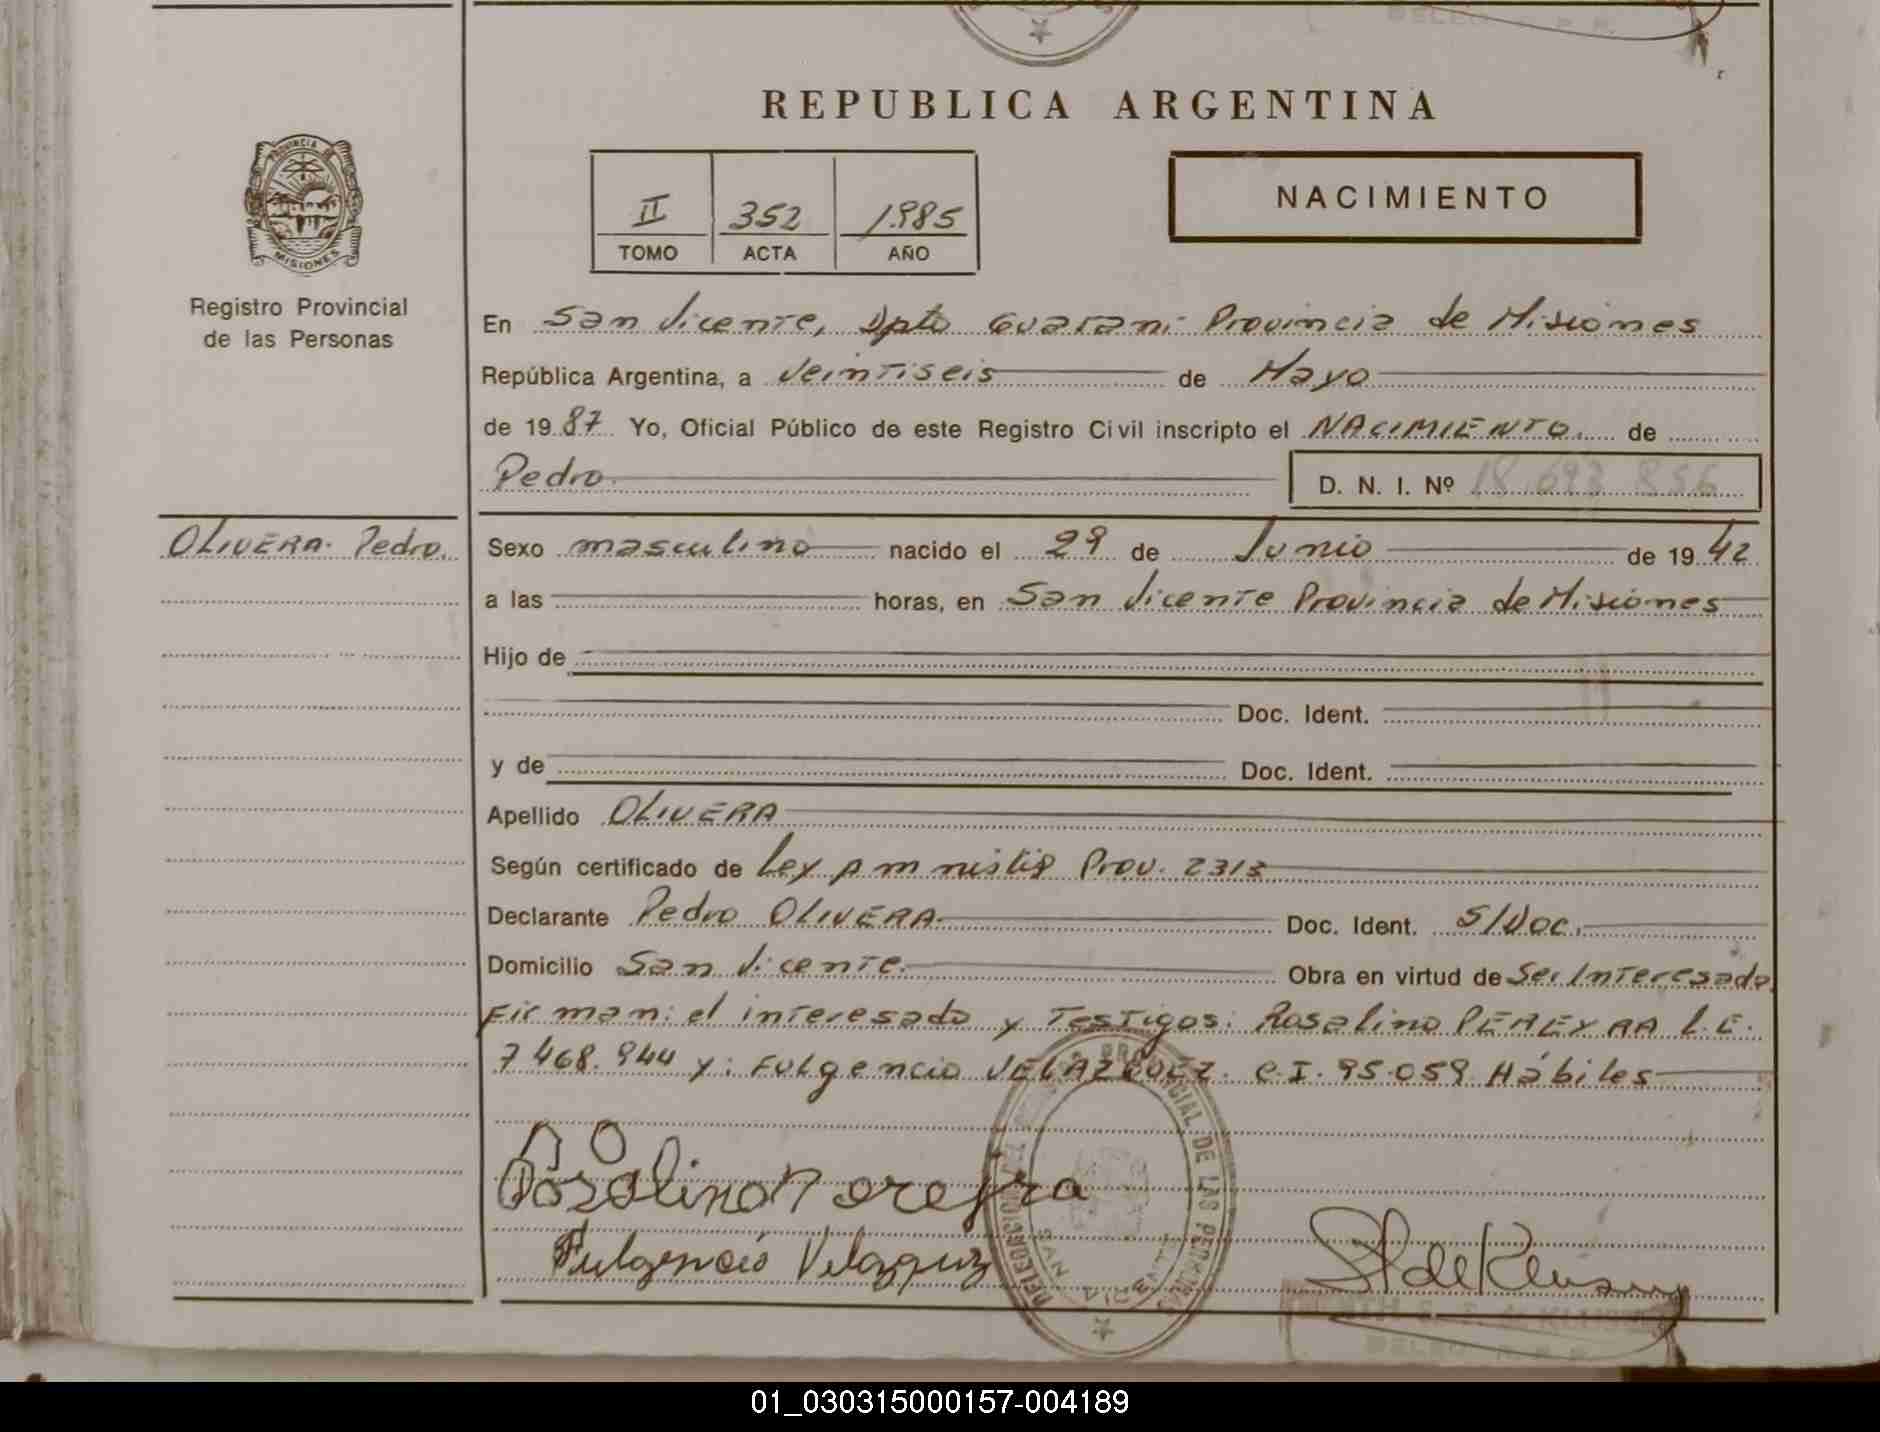 REPUBLICA ARGENTINA
PROVINCIA DE
MISIONES
Registro Provincial
de las Personas
II 352 1.985
TOMO ACTA AÑO
NACIMIENTO
En San Vicente, Dpto Guarani Provincia de Misiones
República Argentina, a Veintiseis de Mayo
de 1987 Yo, Oficial Público de este Registro Civil inscripto el NACIMIENTO. de
Pedro. D. N. I. Nº 18.693.856
OLIVERA. Pedro.
Sexo masculino nacido el 29 de Junio de 1942
a las horas, en San Vicente Provincia de Misiones
Hijo de
Doc. Ident.
y de Doc. Ident.
Apellido OLIVERA
Según certificado de Ley Amnistia Prov. 2313
Declarante Pedro OLIVERA. Doc. Ident. S/Doc.
Domicilio San Vicente. Obra en virtud de Ser Interesado.
Firman: el interesado y Testigos: Rosalino PEREYRA L.E.
7468.944 y: Fulgencio VELAZQUEZ. C.I. 95.059 Hábiles
Rosalino Pereyra
Fulgencio Velazquez
PROVINCIAL DE LAS PERSONAS
SAN VICENTE
01_030315000157-004189